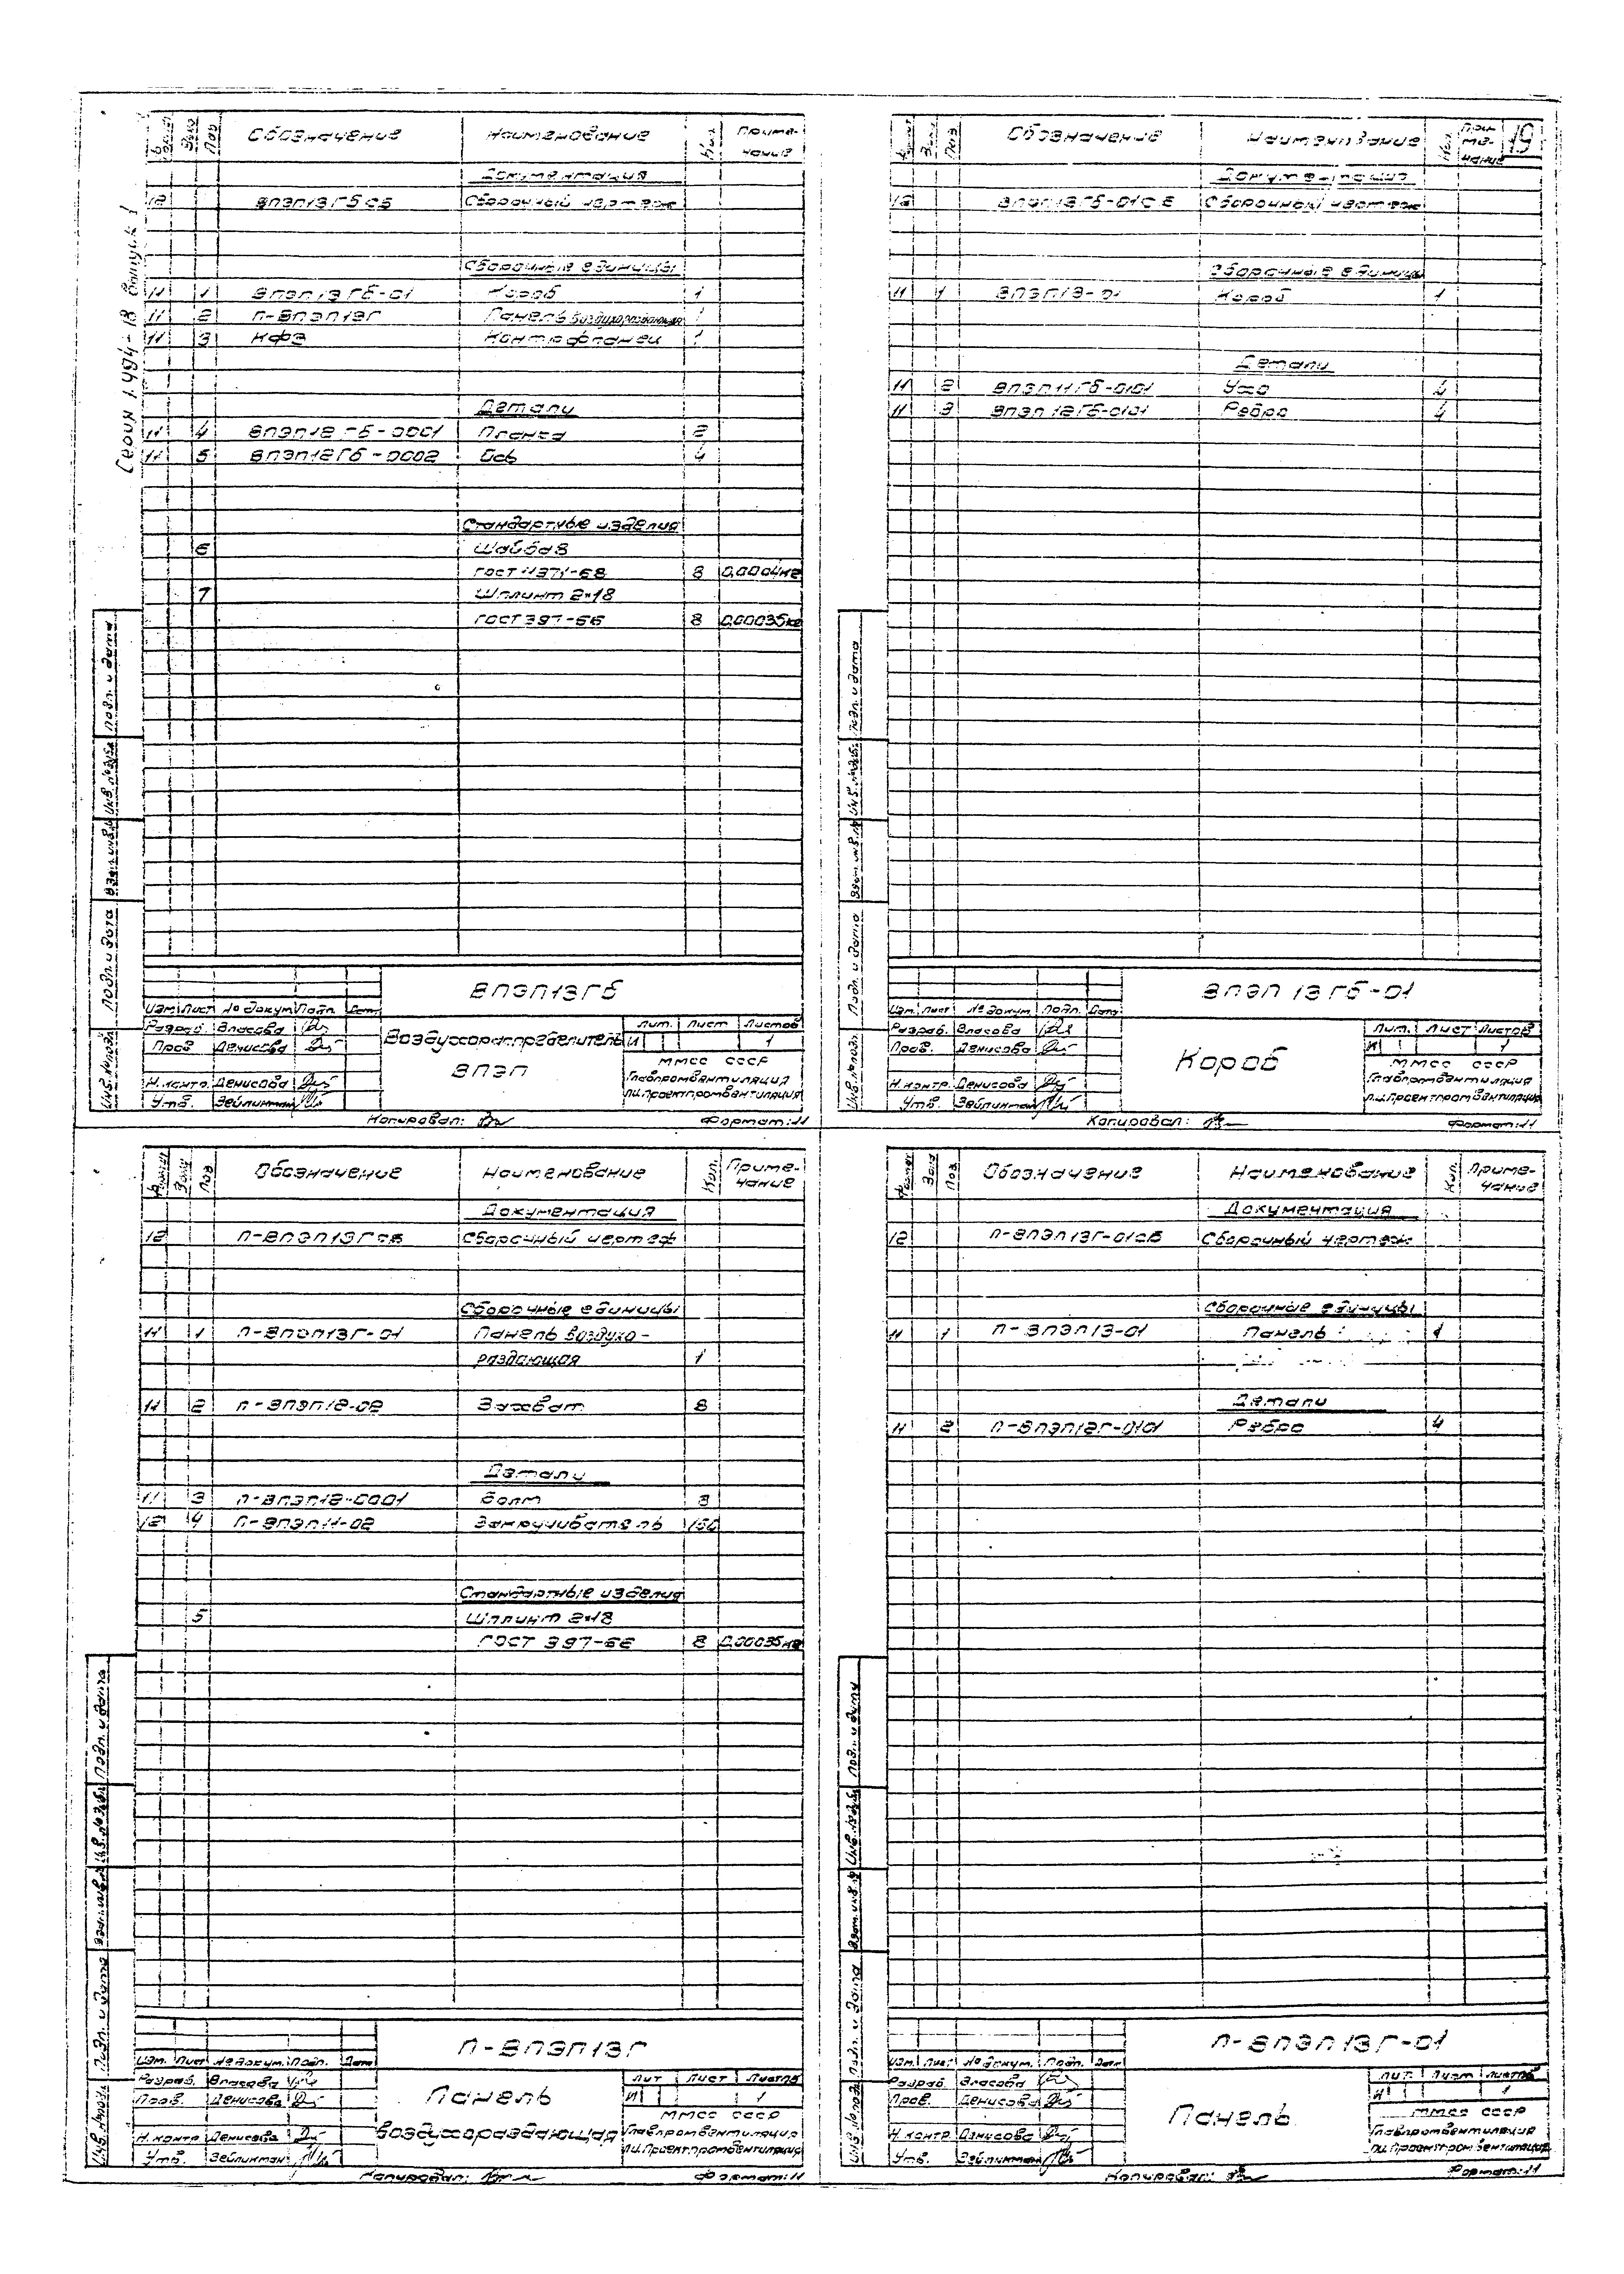 Серия 1.494-18 Выпуск 1
19
Формат Зона Поз Обозначение Наименование Кол. Приме-
чание
Документация
12 ВПЭП13Гб СБ Сборочный чертеж
Сборочные единицы
11 1 ВПЭП13Гб-01 Короб 1
11 2 П-ВПЭП13Г Панель воздухораздающая 1
11 3 КФ3 Контрфланец 1
Детали
11 4 ВПЭП12Гб-0001 Планка 2
11 5 ВПЭП12Гб-0002 Ось 4
Стандартные изделия
6 Шайба 8
ГОСТ 11371-68 8 0,0004кг
7 Шплинт 2×18
ГОСТ 397-66 8 0,00035кг
Подп. и дата
Инв. № дубл.
Взам. инв. №
Подп. и дата
Инв. № подл.
ВПЭП13Гб
Изм. Лист № докум. Подп. Дата
Разраб. Власова
Пров. Денисова
Н.контр. Денисова
Утв. Зейликман
Воздухораспределитель
ВПЭП
Лит. Лист Листов
И 1
ММСС СССР
Главпромвентиляция
ПИ Проектпромвентиляция
Копировал: Формат: 11
Формат Зона Поз. Обозначение Наименование Кол. При-
ме-
чание
Документация
12 ВПЭП13Гб-01СБ Сборочный чертеж
Сборочные единицы
11 1 ВПЭП13-01 Короб 1
Детали
11 2 ВПЭП11Гб-0101 Ухо 4
11 3 ВПЭП12Гб-0101 Ребро 4
Подп. и дата
Инв. № дубл.
Взам. инв. №
Подп. и дата
Инв. № подл.
ВПЭП 13Гб-01
Изм. Лист № докум. Подп. Дата
Разраб. Власова
Пров. Денисова
Н.контр. Денисова
Утв. Зейликман
Короб
Лит. Лист Листов
И 1
ММСС СССР
Главпромвентиляция
ПИ Проектпромвентиляция
Копировал: Формат: 11
Формат Зона Поз Обозначение Наименование Кол. Приме-
чание
Документация
12 П-ВПЭП13ГСБ Сборочный чертеж
Сборочные единицы
11 1 П-ВПЭП13Г-01 Панель воздухо-
раздающая 1
11 2 П-ВПЭП12-02 Захват 8
Детали
11 3 П-ВПЭП12-0001 Болт 8
12 4 П-ВПЭП11-02 Закручиватель 150
Стандартные изделия
5 Шплинт 2×18
ГОСТ 397-66 8 0,00035кг
Подп. и дата
Инв. № дубл.
Взам. инв. №
Подп. и дата
Инв. № подл.
П-ВПЭП13Г
Изм. Лист № докум. Подп. Дата
Разраб. Власова
Пров. Денисова
Н.контр Денисова
Утв. Зейликман
Панель
воздухораздающая
Лит Лист Листов
И 1
ММСС СССР
Главпромвентиляция
ПИ Проектпромвентиляция
Копировал: Формат: 11
Формат Зона Поз. Обозначение Наименование Кол. Приме-
чание
Документация
12 П-ВПЭП13Г-01СБ Сборочный чертеж
Сборочные единицы
11 1 П-ВПЭП13-01 Панель 1
Детали
11 2 П-ВПЭП12Г-0101 Ребро 4
Подп. и дату
Инв. № дубл.
Взам. инв. №
Подп. и дата
Инв. № подл.
П-ВПЭП13Г-01
Изм. Лист № докум. Подп. Дата
Разраб. Власова
Пров. Денисова
Н.контр. Денисова
Утв. Зейликман
Панель
Лит. Лист Листов
И 1
ММСС СССР
Главпромвентиляция
ПИ Проектпромвентиляция
Копировал: Формат: 11